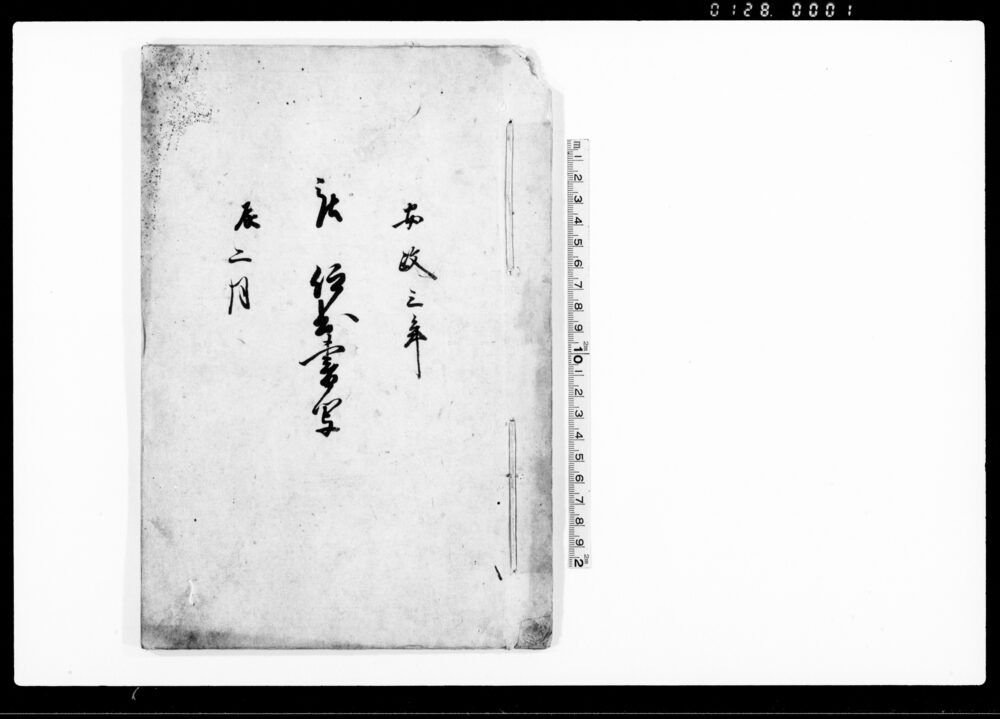 0128. 0001
安政三年
書写
辰二月
m 1 2 3 4 5 6 7 8 9 10 1 2 3 4 5 6 7 8 9 2